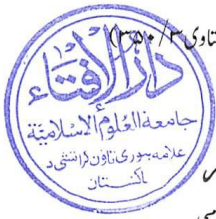 تاوی ۳/۳۵۰)
دارالافتاء
جامعة العلوم الاسلامیة
علامہ بنوری ٹاؤن کراتشی ۵
پاکستان